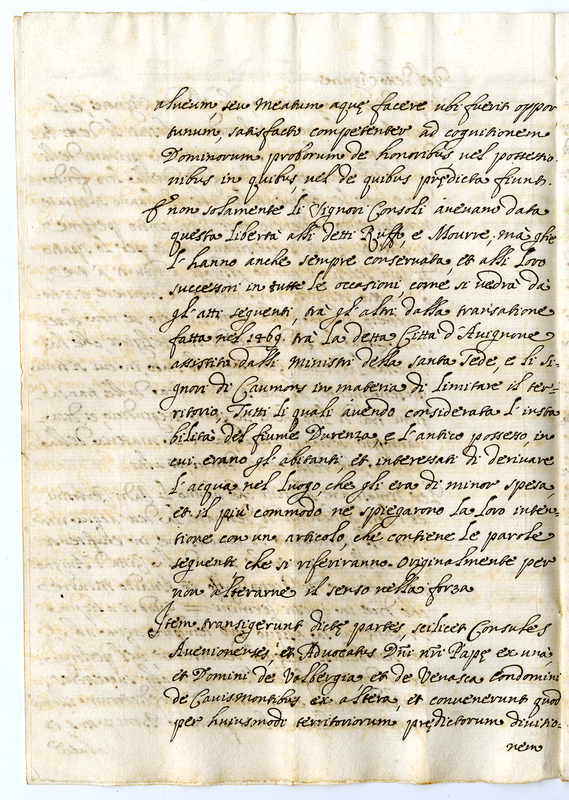 alveum, seu meatum aquę facere ubi fuerit oppor
tunum, satisfacto competenter ad cognitionem
Dominorum proborum de honoribus vel possessio
nibus in quibus, vel de quibus prędicta fiunt.
E non solamente li Signori Consoli avevano data
questa libertà alli detti Ruffo, e Mourre, mà ghe
l'hanno anche sempre conservata, et alli loro
successori in tutte le occasioni, come si vedrà da
gl'atti seguenti, trà gl'altri dalla transatione
fatta nel 1469. trà la detta Città d'Avignone
assistita dalli ministri della Santa Sede, e li Si-
gnori di Caumons in materia di limitare il ter-
ritorio, Tutti li quali avendo considerata l'insta
bilità del fiume Durenza, e l'antico possesso, in
cui erano gl'abitanti, et interessati di derivare
l'acqua nel luogo, che gli era di minor spesa,
et il più commodo ne spiegarono la loro inten-
tione con un articolo, che contiene le parole
seguenti che si riferiranno. Originalmente per
non alterarne il senso nella forza
Item transigerunt dictę partes, scilicet Consules
Avenionenses, et Advocatus Dñi nr̃i Papę ex una,
et Domini de Valbergia et de Venasca condomini
de Cavismontibus ex altera, et convenerunt quod
per huiusmodi territoriorum prędictorum divisio-
nem